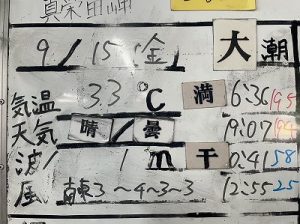 真栄田岬
9/15(金) 大潮
気温 33℃ 満 6:36 195
天気 晴/曇 19:07 194
波 1m 干 0:41 58
風 南東3~4~3~3 12:55 25